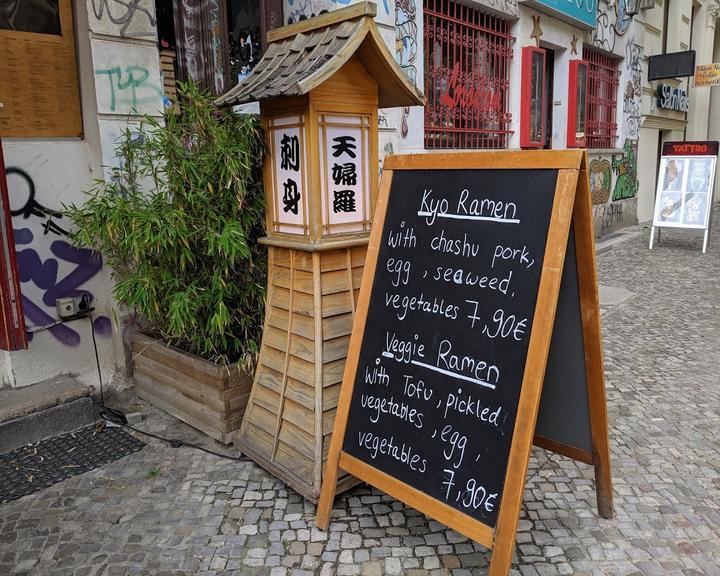 刺身
天婦羅
Kyo Ramen
with chashu pork,
egg , seaweed,
vegetables 7,90€
Veggie Ramen
with Tofu, pickled
vegetables , egg ,
vegetables
7,90€
TATTOO